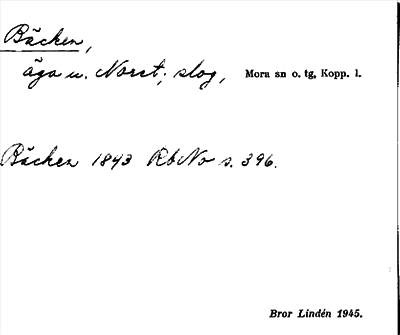 Bäcken,
äga u. Noret; slog, Mora sn o. tg, Kopp. l.
Bäcken 1843 RbNo s. 396.
Bror Lindén 1945.